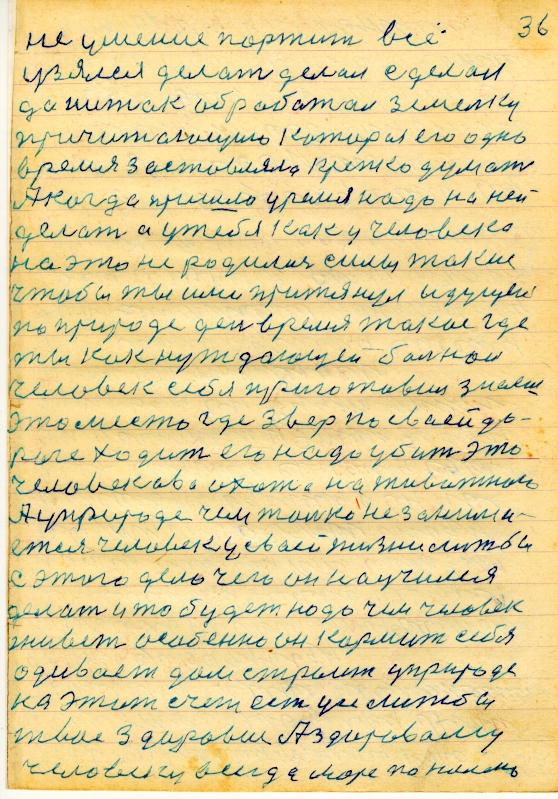 36
не умение портит всё
узялся делат делал сделал
да ни так обработал землю
причитающию которая его одно
время заставляла крепко думат
А когда пришло уремя надо на ней
делат а у тебя как у человека
на это не родилися силы такие
чтобы ты ими притянул идущей
по природе ден время такое где
ты как нуждающей болной
человек себя приготовил знает
это место где звер по сваей до-
роге ходит его надо убит это
человекава охота на животного
А у природе чем толко не занима-
ется человек у сваей жизни лиж бы
с этого дело чего он научился
делат и то будет надо чем человек
живет особенно он кормит себя
одивает дом строит у природе
на этот счет ест уче лиж бы
твое здоровие А здоровому
человеку всегда море по колено